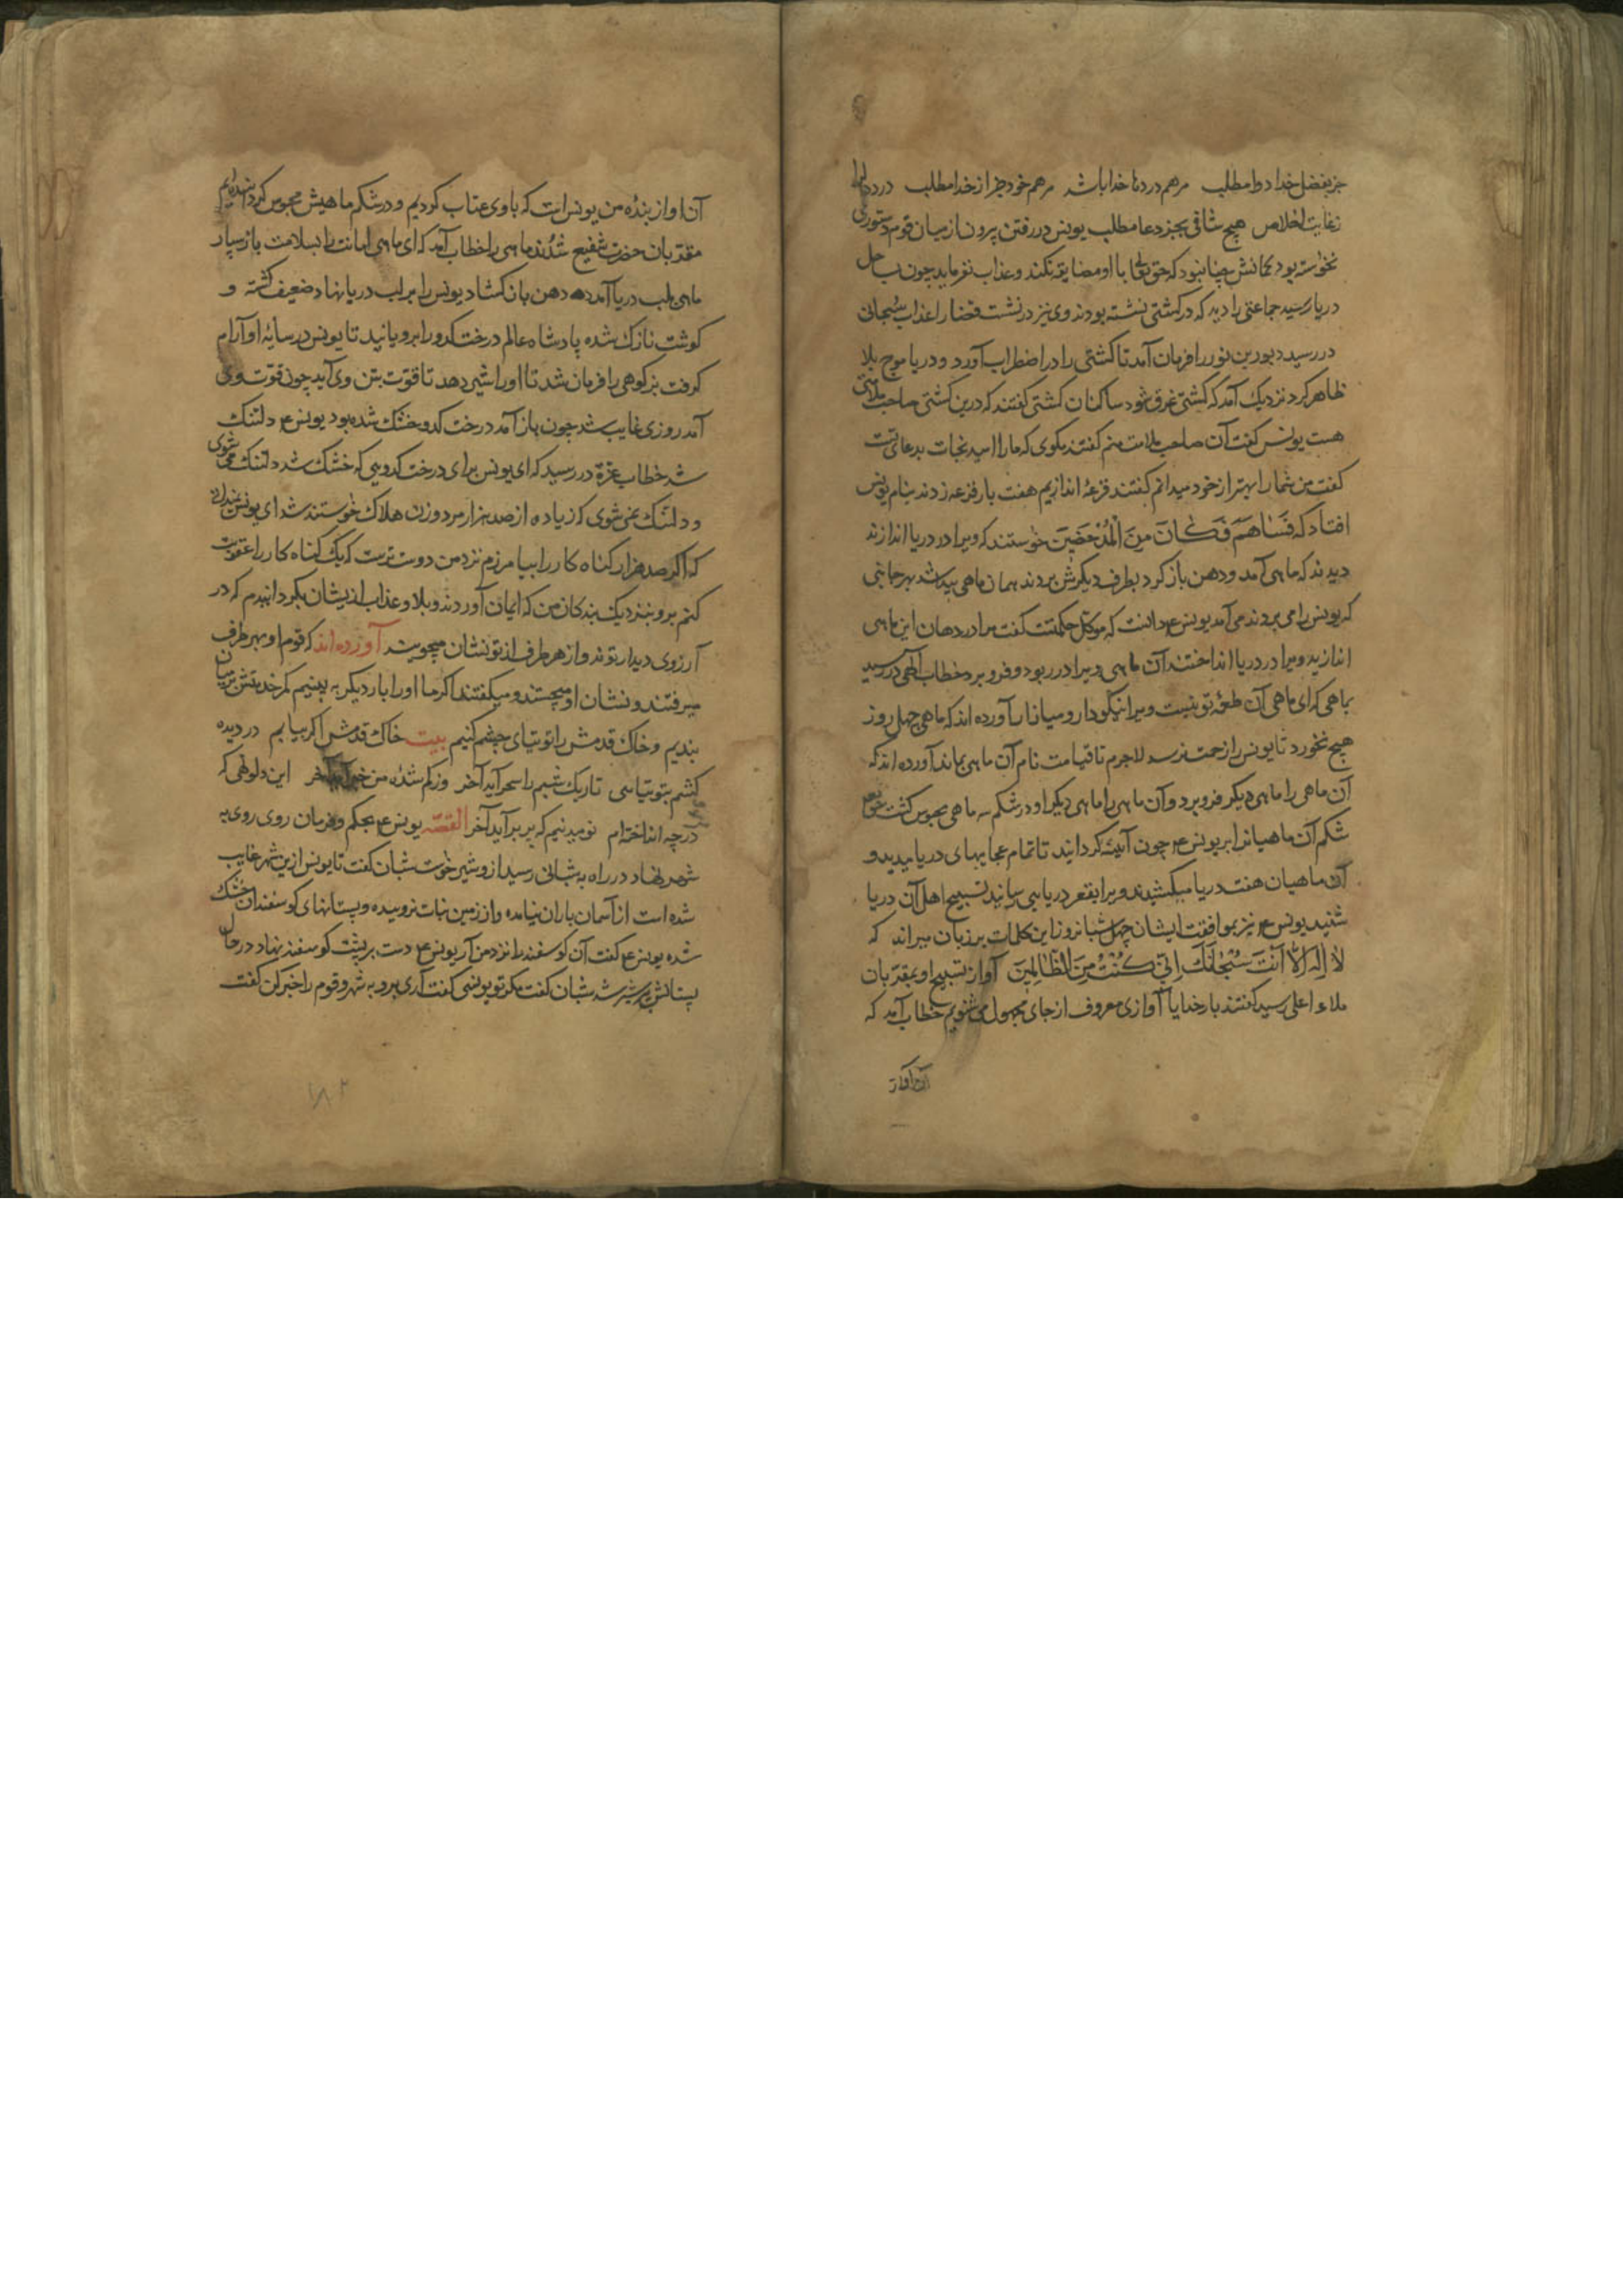 جز بفضل خدا دوا مطلب مرهم درد ما خدا باشد مرهم خود جز از خدا مطلب درد دلها
زغایت اخلاص هیچ شافی بجز دعا مطلب یونس در رفتن بیرون از میان قوم دستوری
نخواسته بود کمانش چنان بود که حق تعالی با او مضایقه نکند و عذاب نفرماید چون بساحل
دریا رسید جماعتی را دید که در کشتی نشسته بودند وی نیز در نشست قضا را عذاب سبحانی
در رسید دبور بن نور را فرمان آمد تا کشتی را در اضطراب آورد و دریا موج بلا
ظاهر کرد نزدیک آمد که کشتی غرق شود ساکنان کشتی کفتند که درین کشتی صاحب ملامتی
هست یونس کفت آن صاحب ملامت منم کفتند مکوی که ما را امید نجات بدعای تست
کفت من شما را بهتر از خود میدانم کفتند قرعه اندازیم هفت بار قرعه زدند بنام یونس
افتاد که فَسَاهَمَ فَكَانَ مِنَ الْمُدْحَضِينَ خواستند که ویرا در دریا اندازند
دیدند که ماهی آمد و دهن باز کرد بطرف دیکرش بردند همان ماهی پیدا شد بهر جانبی
که یونس را می بردند می آمد یونس ع دانست که موکل حکمتست کفت مرا در دهان این ماهی
اندازید ویرا در دریا انداختند آن ماهی ویرا در ربود و فرو برد خطاب الهی در رسید
بماهی که ای ماهی آن طعمه تو نیست ویرا نیکو دار و میازار آورده اند که ماهی چهل روز
هیچ نخورد تا یونس را زحمت نرسد لاجرم تا قیامت نام آن ماهی بماند آورده اند که
آن ماهی را ماهی دیکر فرو برد و آن ماهی را ماهی دیکر او در شکم سه ماهی محبوس کشت حق تعالی
شکم آن ماهیانرا بر یونس ع چون آئینه کردانید تا تمام عجایبهای دریا میدید و
آن ماهیان هفت دریا میکشیدند ویرا بقعر دریا می رسانیدند تسبیح اهل آن دریا
شنید یونس ع نیز بموافقت ایشان چهل شبانروز این کلمات بر زبان میراند که
لَا إِلَهَ إِلَّا أَنْتَ سُبْحَانَكَ إِنِّي كُنْتُ مِنَ الظَّالِمِينَ آواز تسبیح او بمقربان
ملاء اعلی رسید کفتند بار خدایا آوازی معروف از جای مجهول می شنویم خطاب آمد که
آن آواز
آن آواز بنده من یونس است که باوی عتاب کردیم و در شکم ماهیش محبوس کردانیده ایم
مقربان حضرت شفیع شدند ماهی را خطاب آمد که ای ماهی امانت را بسلامت باز سپار
ماهی بلب دریا آمده دهن باز کشاد یونس را بر لب دریا نهاد ضعیف کشته و
کوشت نازک شده پادشاه عالم درخت کدو را برویانید تا یونس در سایه او آرام
کرفت بز کوهی را فرمان شد تا اورا شیر دهد تا قوت بتن وی آید چون قوت وی
آمد روزی غایب شد چون باز آمد درخت کدو خشک شده بود یونس ع دلتنک
شد خطاب عزة در رسید که ای یونس برای درخت کدویی که خشک شد دلتنک می شوی
و دلتنک نمی شوی که زیاده از صد هزار مرد و زن هلاک خواستند شد ای یونس نمیدانی
که اکر صد هزار کناه کار را بیامرزم نزد من دوست ترست که یک کناه کار را عقوبت
کنم برو بنزدیک بندکان من که ایمان آوردند و بلا و عذاب از یشان بکردانیدم که در
آرزوی دیدار تو ند و از هر طرف از تو نشان میجویند آورده اند که قوم او بهر طرف
میرفتند و نشان او میجستند و میکفتند اکر ما اورا بار دیکر به بینیم کمر خدمتش بر میان
بندیم و خاک قدمش را توتیای چشم کنیم بیت خاک قدمش اکر بیابم در دیده
کشم بتوتیایی تاریک شبم را سحر آید آخر وز کم شده من خبر آید آخر این دلو تهی که
در چه انداخته ام نومید نیم که پر بر آید آخر القصه یونس ع بحکم و فرمان روی روی به
شهر نهاد در راه به شبانی رسید از و شیر خواست شبان کفت تا یونس ازین شهر غایب
شده است از آسمان باران نیامده و از زمین نبات نروییده و پستانهای کوسفندان خشک
شده یونس ع کفت آن کوسفند را نزد من آر یونس ع دست بر پشت کوسفند نهاد در حال
پستانش پر شیر شد شبان کفت مکر تو یونسی کفت آری برو به شهر و قوم را خبر کن کفت
۱۸۲